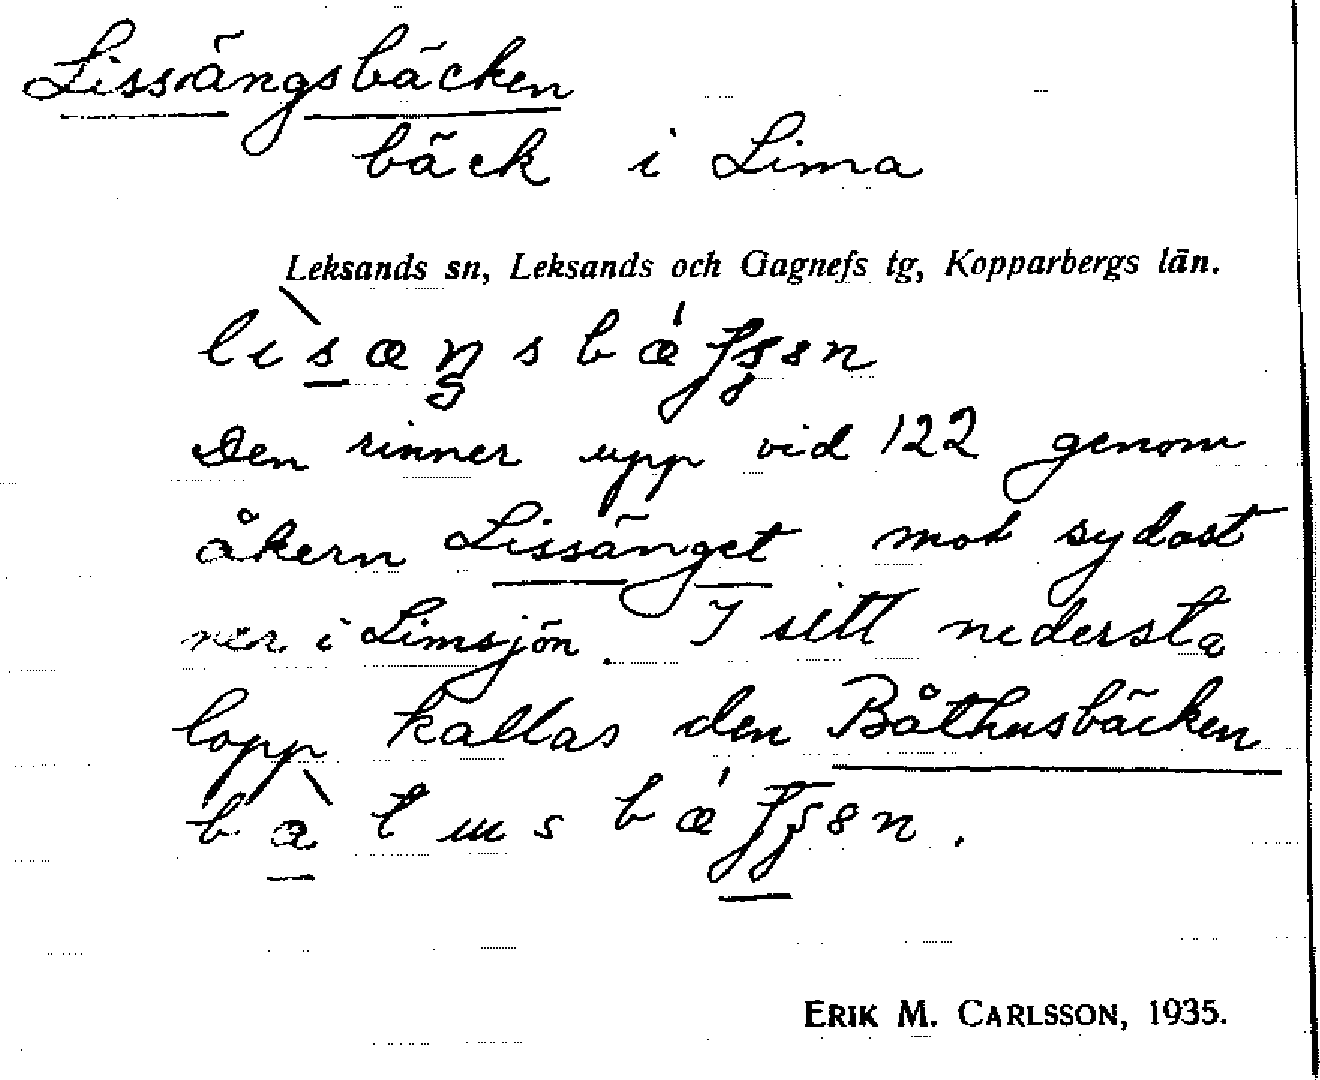 Lissängsbäcken
bäck i Lima
Leksands sn, Leksands och Gagnefs tg, Kopparbergs län.
Den rinner upp vid 122 genom
åkern Lissänget mot sydost
ner i Limsjön. I sitt nedersta
lopp kallas den Båthusbäcken
ERIK M. CARLSSON, 1935.